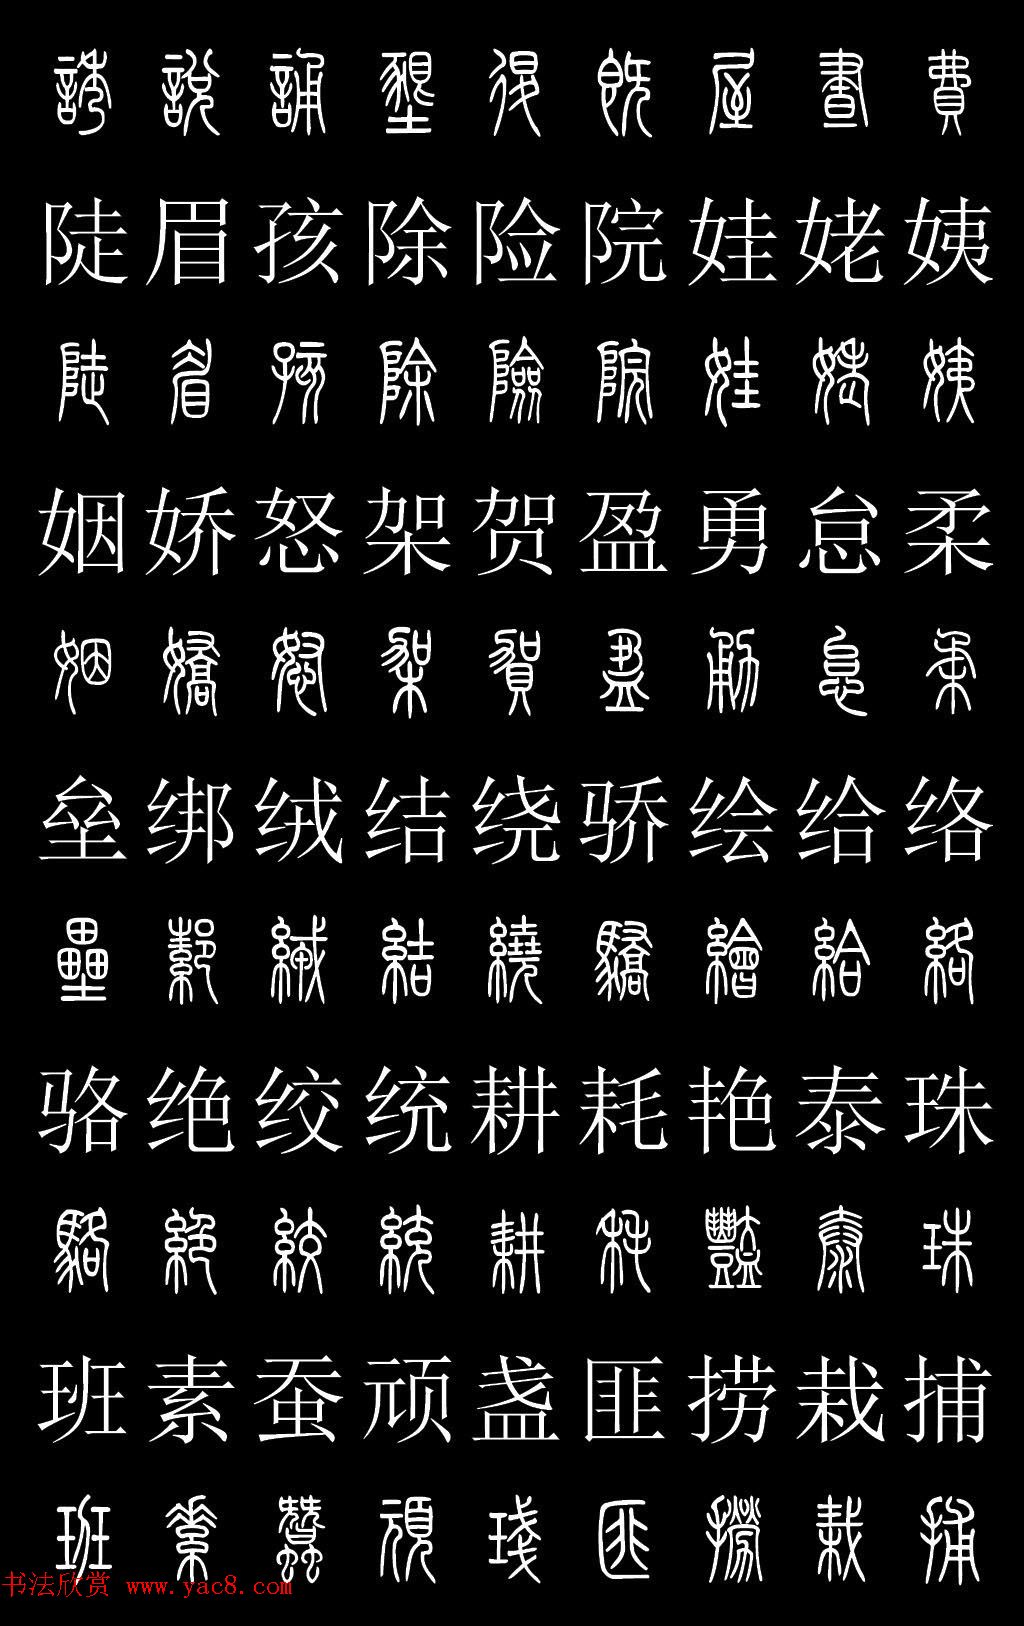 誘說誦墾很既屋晝費
陡眉孩除险院娃姥姨
陡眉孩除險院娃姥姨
姻娇怒架贺盈勇怠柔
姻嬌怒架賀盈勇怠柔
垒绑绒结绕骄绘给络
壘綁絨結繞驕繪給絡
骆绝绞统耕耗艳泰珠
駱絕絞統耕耗豔泰珠
班素蚕顽盏匪捞栽捕
班素蠶頑琖匪撈栽捕
书法欣赏 www.yac8.com